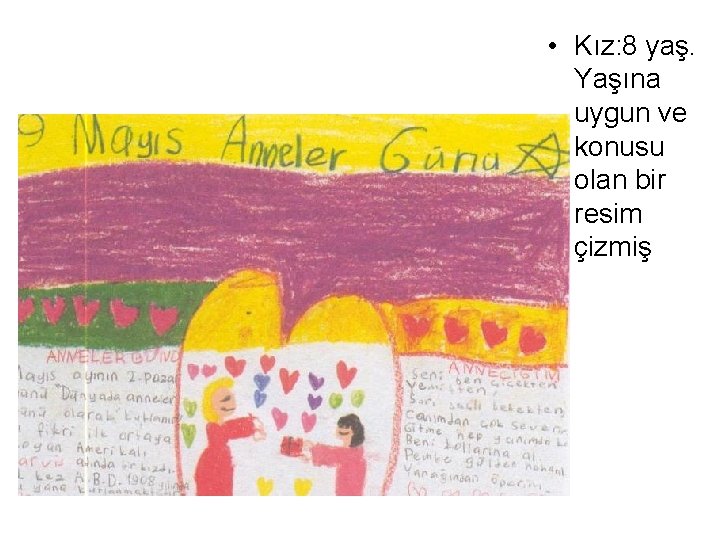 • Kız: 8 yaş.
Yaşına
uygun ve
konusu
olan bir
resim
çizmiş
9 Mayıs Anneler Günü
ANNELER GÜNÜ
Mayıs ayının 2. Paza
Dünyada anneler
günü olarak kutlanır
fikri ilk ortaya
Amerikalı
Jarvis adında bir kızdı
kez A.B.D. 1908
kutlanmaktadır
ANNECİĞİM
Seni ben çiçekten
Yemişten
Sarı saçlı bebekten
Canımdan çok severim
Gitme hep yanımda kal
Beni kollarına al
Pembe gülden
Yanağından öperim